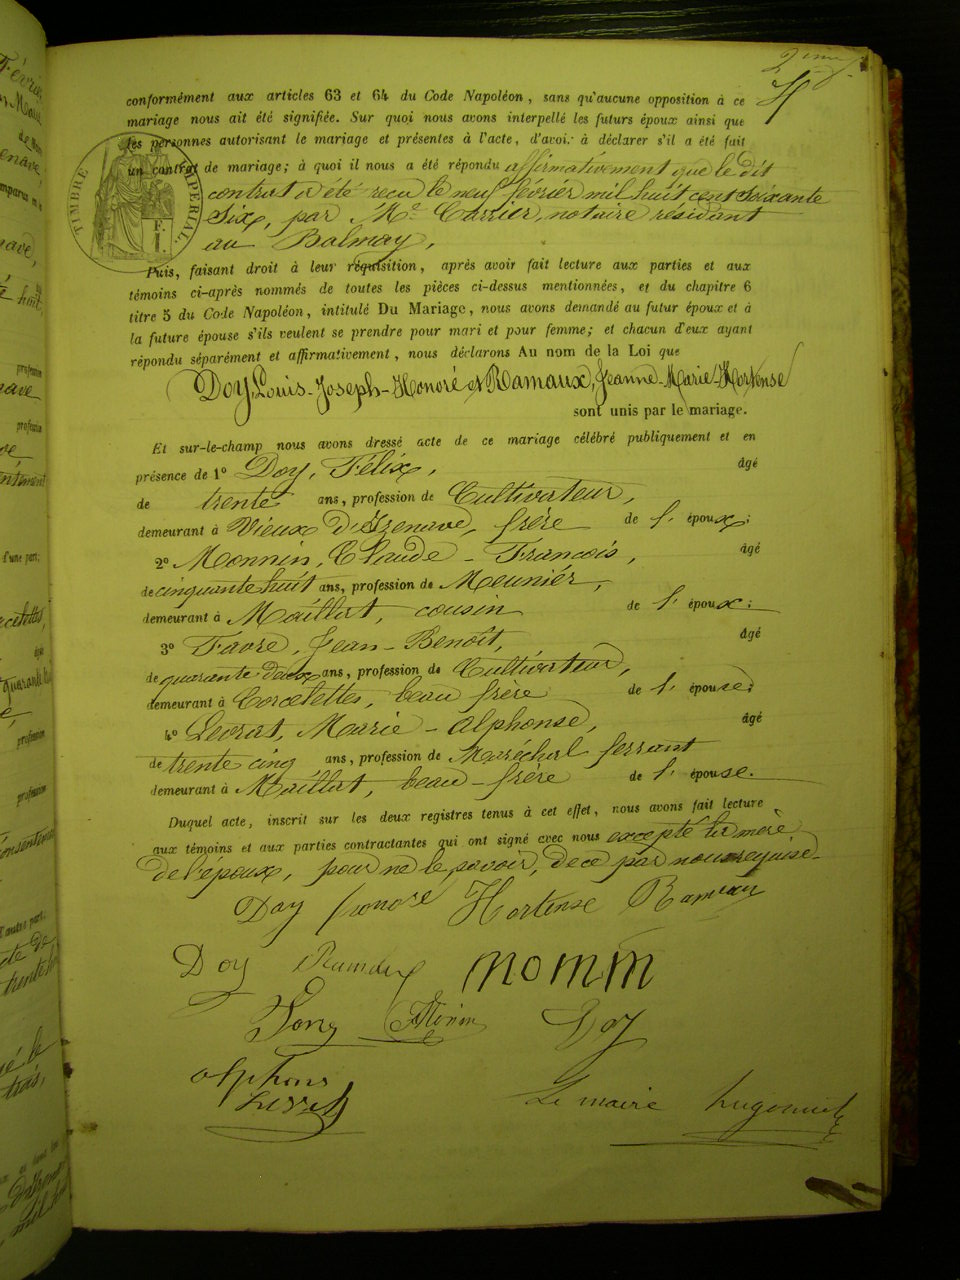 2eme
conformément aux articles 63 et 64 du Code Napoléon, sans qu'aucune opposition à ce
mariage nous ait été signifiée. Sur quoi nous avons interpellé les futurs époux ainsi que
les personnes autorisant le mariage et présentes à l'acte, d'avoir à déclarer s'il a été fait
un contrat de mariage; à quoi il nous a été répondu affirmativement que le dit
contrat a été recu le neuf février mil huit cent soixante
Six, par Me Carrier, notaire résidant
au Balmay,
TIMBRE IMPÉRIAL.
F.
I.
Puis, faisant droit à leur réquisition, après avoir fait lecture aux parties et aux
témoins ci-après nommés de toutes les pièces ci-dessus mentionnées, et du chapitre 6
titre 5 du Code Napoléon, intitulé Du Mariage, nous avons demandé au futur époux et à
la future épouse s'ils veulent se prendre pour mari et pour femme; et chacun d'eux ayant
répondu séparément et affirmativement, nous déclarons Au nom de la Loi que
Doy, Louis-Joseph-Honoré et Ramaux, Jeanne-Marie-Hortense
sont unis par le mariage.
Et sur-le-champ nous avons dressé acte de ce mariage célébré publiquement et en
présence de 1º Doy, Félix, âgé
de trente ans, profession de Cultivateur,
demeurant à Vieux d'Izenave, frère de l'époux;
2º Monnin, Claude-François, âgé
de cinquante huit ans, profession de Meunier,
demeurant à Maillat, cousin de l'époux;
3º Favre, Jean-Benoît, âgé
de quarante deux ans, profession de Cultivateur,
demeurant à Corcelettes, beau frère de l'épouse;
4º Levrat, Marie-Alphonse, âgé
de trente cinq ans, profession de Maréchal ferrant
demeurant à Maillat, beau-frère de l'épouse.
Duquel acte, inscrit sur les deux registres tenus à cet effet, nous avons fait lecture
aux témoins et aux parties contractantes qui ont signé avec nous excepté la mère
de l'époux, pour ne le savoir, de ce par nous requise.
Doy honoré Hortense Ramaux
Doy Ramaux
Doy
alphons
Levrat
Le maire hugonnet